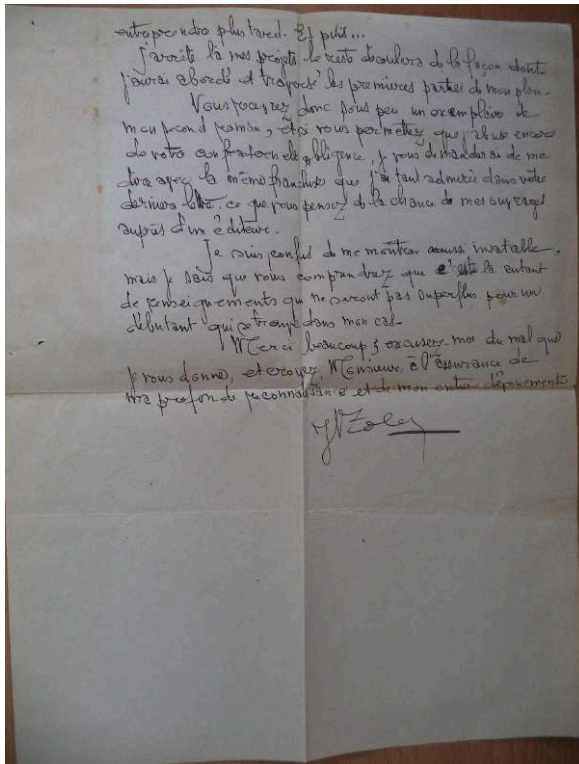 entreprendre plus tard. Et puis...
J'arrête là mes projets le reste découlera de la façon dont
j'aurai abordé et traversé les premières parties de mon plan.
Vous recevrez donc sous peu un exemplaire de
mon second roman, et si vous permettez que j'abuse encore
de votre confraternelle obligeance, je vous demanderai de me
dire avec la même franchise que j'ai tant admirée dans votre
dernière lettre, ce que vous pensez de la chance de mes ouvrages
auprès d'un éditeur.
Je suis confus de me montrer aussi insatiable,
mais je sais que vous comprendrez que c'est là autant
de renseignements qui ne seront pas superflus pour un
débutant qui se trouve dans mon cas.
Merci beaucoup, excusez-moi du mal que
je vous donne, et croyez, Monsieur, à l'assurance de
ma profonde reconnaissance et de mon entier dévouement